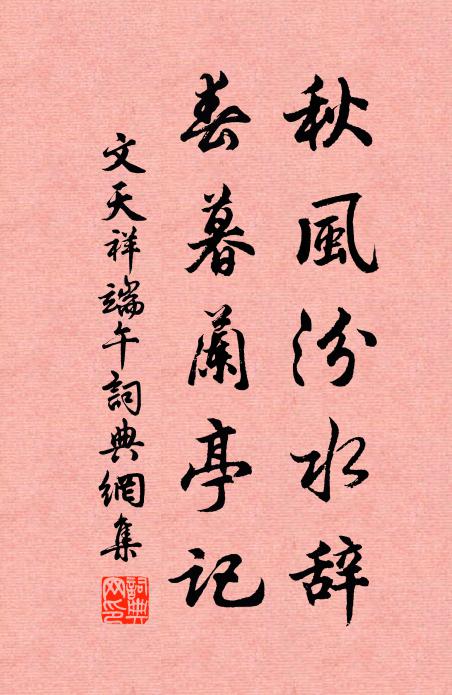 秋風汾水辞
春暮蘭亭記
文天祥端午詞典網集
詞典網印